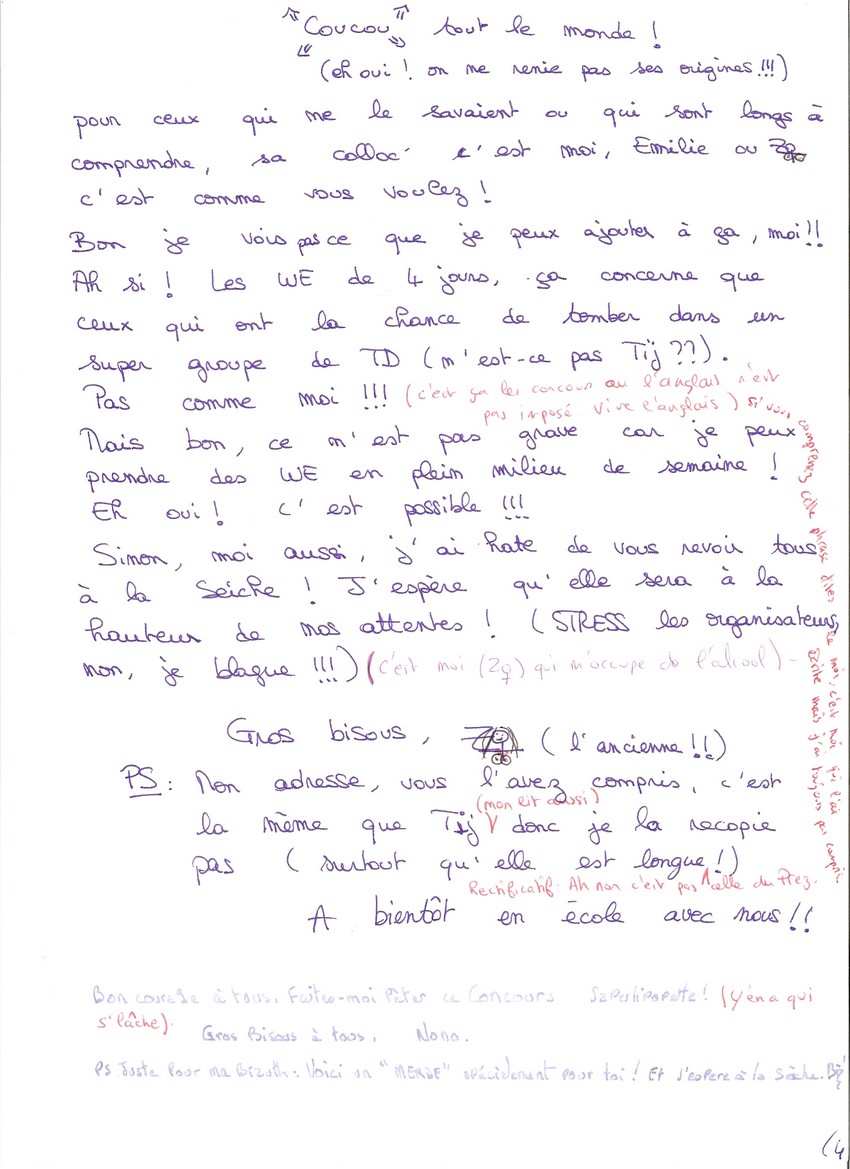 "Coucou" tout le monde !
(eh oui ! on ne renie pas ses origines !!!)
pour ceux qui ne le savaient ou qui sont longs à
comprendre, sa colloc' c'est moi, Emilie ou Zo
c'est comme vous voulez !
Bon je vois pas ce que je peux ajouter à ça, moi !!
Ah si ! Les WE de 4 jours, ça concerne que
ceux qui ont la chance de tomber dans un
super groupe de TD (n'est-ce pas Tij ??).
Pas comme moi !!! (c'est ça les concours où l'anglais n'est
pas imposé. Vive l'anglais) Si vous comprenez cette phrase dites le moi, c'est moi qui l'ai écrite mais j'ai toujours pas compris
Mais bon, ce n'est pas grave car je peux
prendre des WE en plein milieu de semaine !
Eh oui ! C'est possible !!!
Simon, moi aussi, j'ai hate de vous revoir tous
à la Seiche ! J'espère qu'elle sera à la
hauteur de nos attentes ! (STRESS les organisateurs,
non, je blague !!!) (c'est moi (Zo) qui m'occupe de l'alcool) -
Gros bisous, (l'ancienne !!)
PS : Mon adresse, vous l'avez compris, c'est
(mon lit aussi)
la même que Tij donc je la recopie
pas (surtout qu'elle est longue !)
Rectificatif. Ah non c'est pas celle du Prez.
A bientôt en école avec nous !!
Bon courage à tous. Faites-moi Péter ce Concours Saperlipopette ! (Y'en a qui
s'lâche).
Gros Bisous à tous, Nono.
PS Juste Pour ma Bizuth : Voici un "MERDE" spécialement pour toi ! Et J'espere à la Sèche.
(4